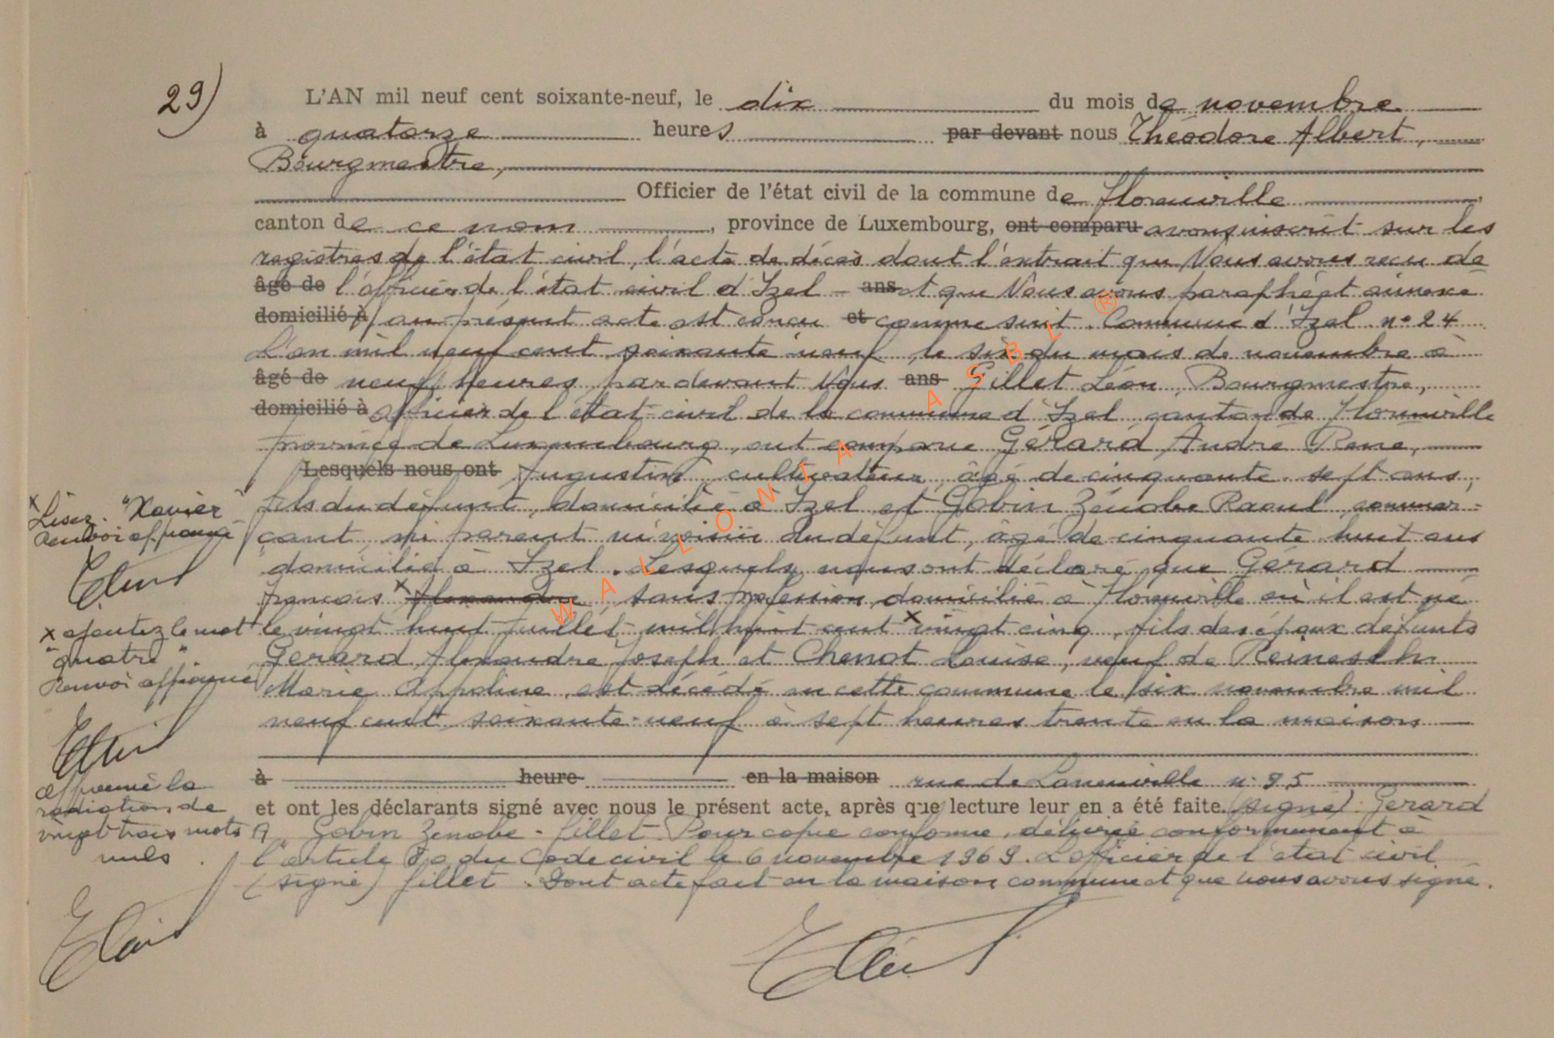 29)
L'AN mil neuf cent soixante-neuf, le dix du mois de novembre
à quatorze heures par devant nous Théodore Albert,
Bourgmestre,
Officier de l'état civil de la commune de Florenville
canton de ce nom, province de Luxembourg, ont comparu avons inscrit sur les
registres de l'état civil, l'acte de décès dont l'extrait que Nous avons reçu de
âgé de l'officier de l'état civil d'Izel - ans et que Nous avons paraphé et annexé
domicilié à au présent acte est conçu et comme suit. Commune d'Izel n° 24
L'an mil neuf cent soixante neuf le six du mois de novembre à
âgé de neuf heures par devant Nous ans Gillet Léon, Bourgmestre,
domicilié à officier de l'état-civil de la commune d'Izel canton de Florenville
province de Luxembourg, ont comparu Gérard André René,
Lesquels nous ont Augustin, cultivateur, âgé de cinquante sept ans,
fils du défunt, domicilié à Izel et Gobin Zénobe Raoul, commer-
çant, ni parent ni voisin du défunt, âgé de cinquante huit ans
domicilié à Izel. Lesquels nous ont déclaré que Gérard
François x Alexandre, sans profession, domicilié à Florenville où il est né
le vingt huit juillet mil huit cent x vingt cinq, fils des époux défunts
Gérard Alexandre Joseph et Chenot Louise, veuf de Reinesch
Marie Appoline est décédé en cette commune le six novembre mil
neuf cent soixante-neuf à sept heures trente en la maison
à heure en la maison rue de Laneuville n° 95
et ont les déclarants signé avec nous le présent acte, après que lecture leur en a été faite. (signé) Gérard
A, Gobin Zénobe - Gillet. Pour copie conforme, délivrée conformément à
l'article 80 du Code civil le 6 novembre 1969. L'officier de l'état civil
(signé) Gillet. Dont acte fait en la maison commune et que nous avons signé.
x Lisez. "Xavier"
Renvoi approuvé
x ajoutez le mot
"quatre".
Renvoi approuvé
approuvé la
radiation de
vingt trois mots
nuls.
WALLONIA ASBL ®